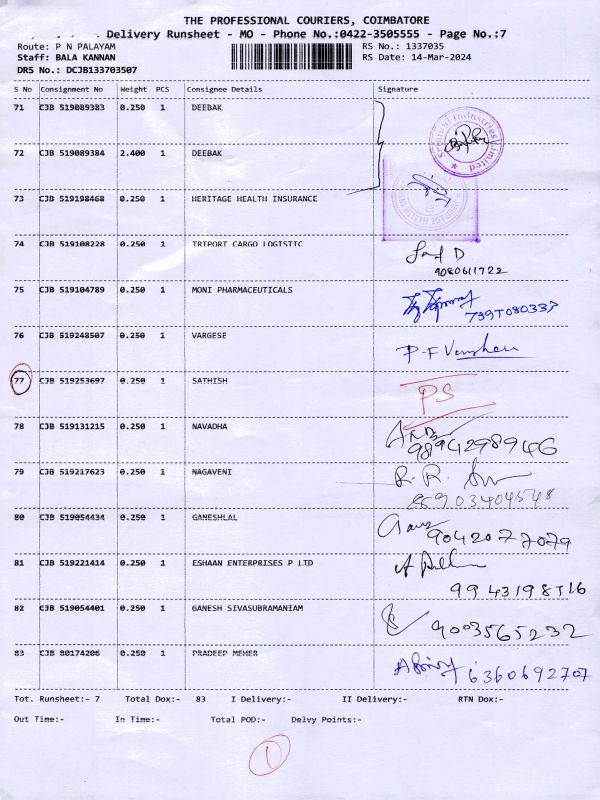 THE PROFESSIONAL COURIERS, COIMBATORE
Delivery Runsheet - MO - Phone No.:0422-3505555 - Page No.:7
Route: P N PALAYAM RS No.: 1337035
Staff: BALA KANNAN RS Date: 14-Mar-2024
DRS No.: DCJB133703507
S No Consignment No Weight PCS Consignee Details Signature
71 CJB 519089383 0.250 1 DEEBAK
72 CJB 519089384 2.400 1 DEEBAK
73 CJB 519198468 0.250 1 HERITAGE HEALTH INSURANCE
74 CJB 519108228 0.250 1 TRIPORT CARGO LOGISTIC
9080611722
75 CJB 519104789 0.250 1 MONI PHARMACEUTICALS
76 CJB 519248507 0.250 1 VARGESE
77 CJB 519253697 0.250 1 SATHISH PS
78 CJB 519131215 0.250 1 NAVADHA
9894298946
79 CJB 519217623 0.250 1 NAGAVENI R. R.
80 CJB 519054434 0.250 1 GANESHLAL
9042077079
81 CJB 519221414 0.250 1 ESHAAN ENTERPRISES P LTD
82 CJB 519054401 0.250 1 GANESH SIVASUBRAMANIAM
9003565232
83 CJB 80174206 0.250 1 PRADEEP MEHER 6360692707
Tot. Runsheet:- 7 Total Dox:- 83 I Delivery:- II Delivery:- RTN Dox:-
Out Time:- In Time:- Total POD:- Delvy Points:-
1